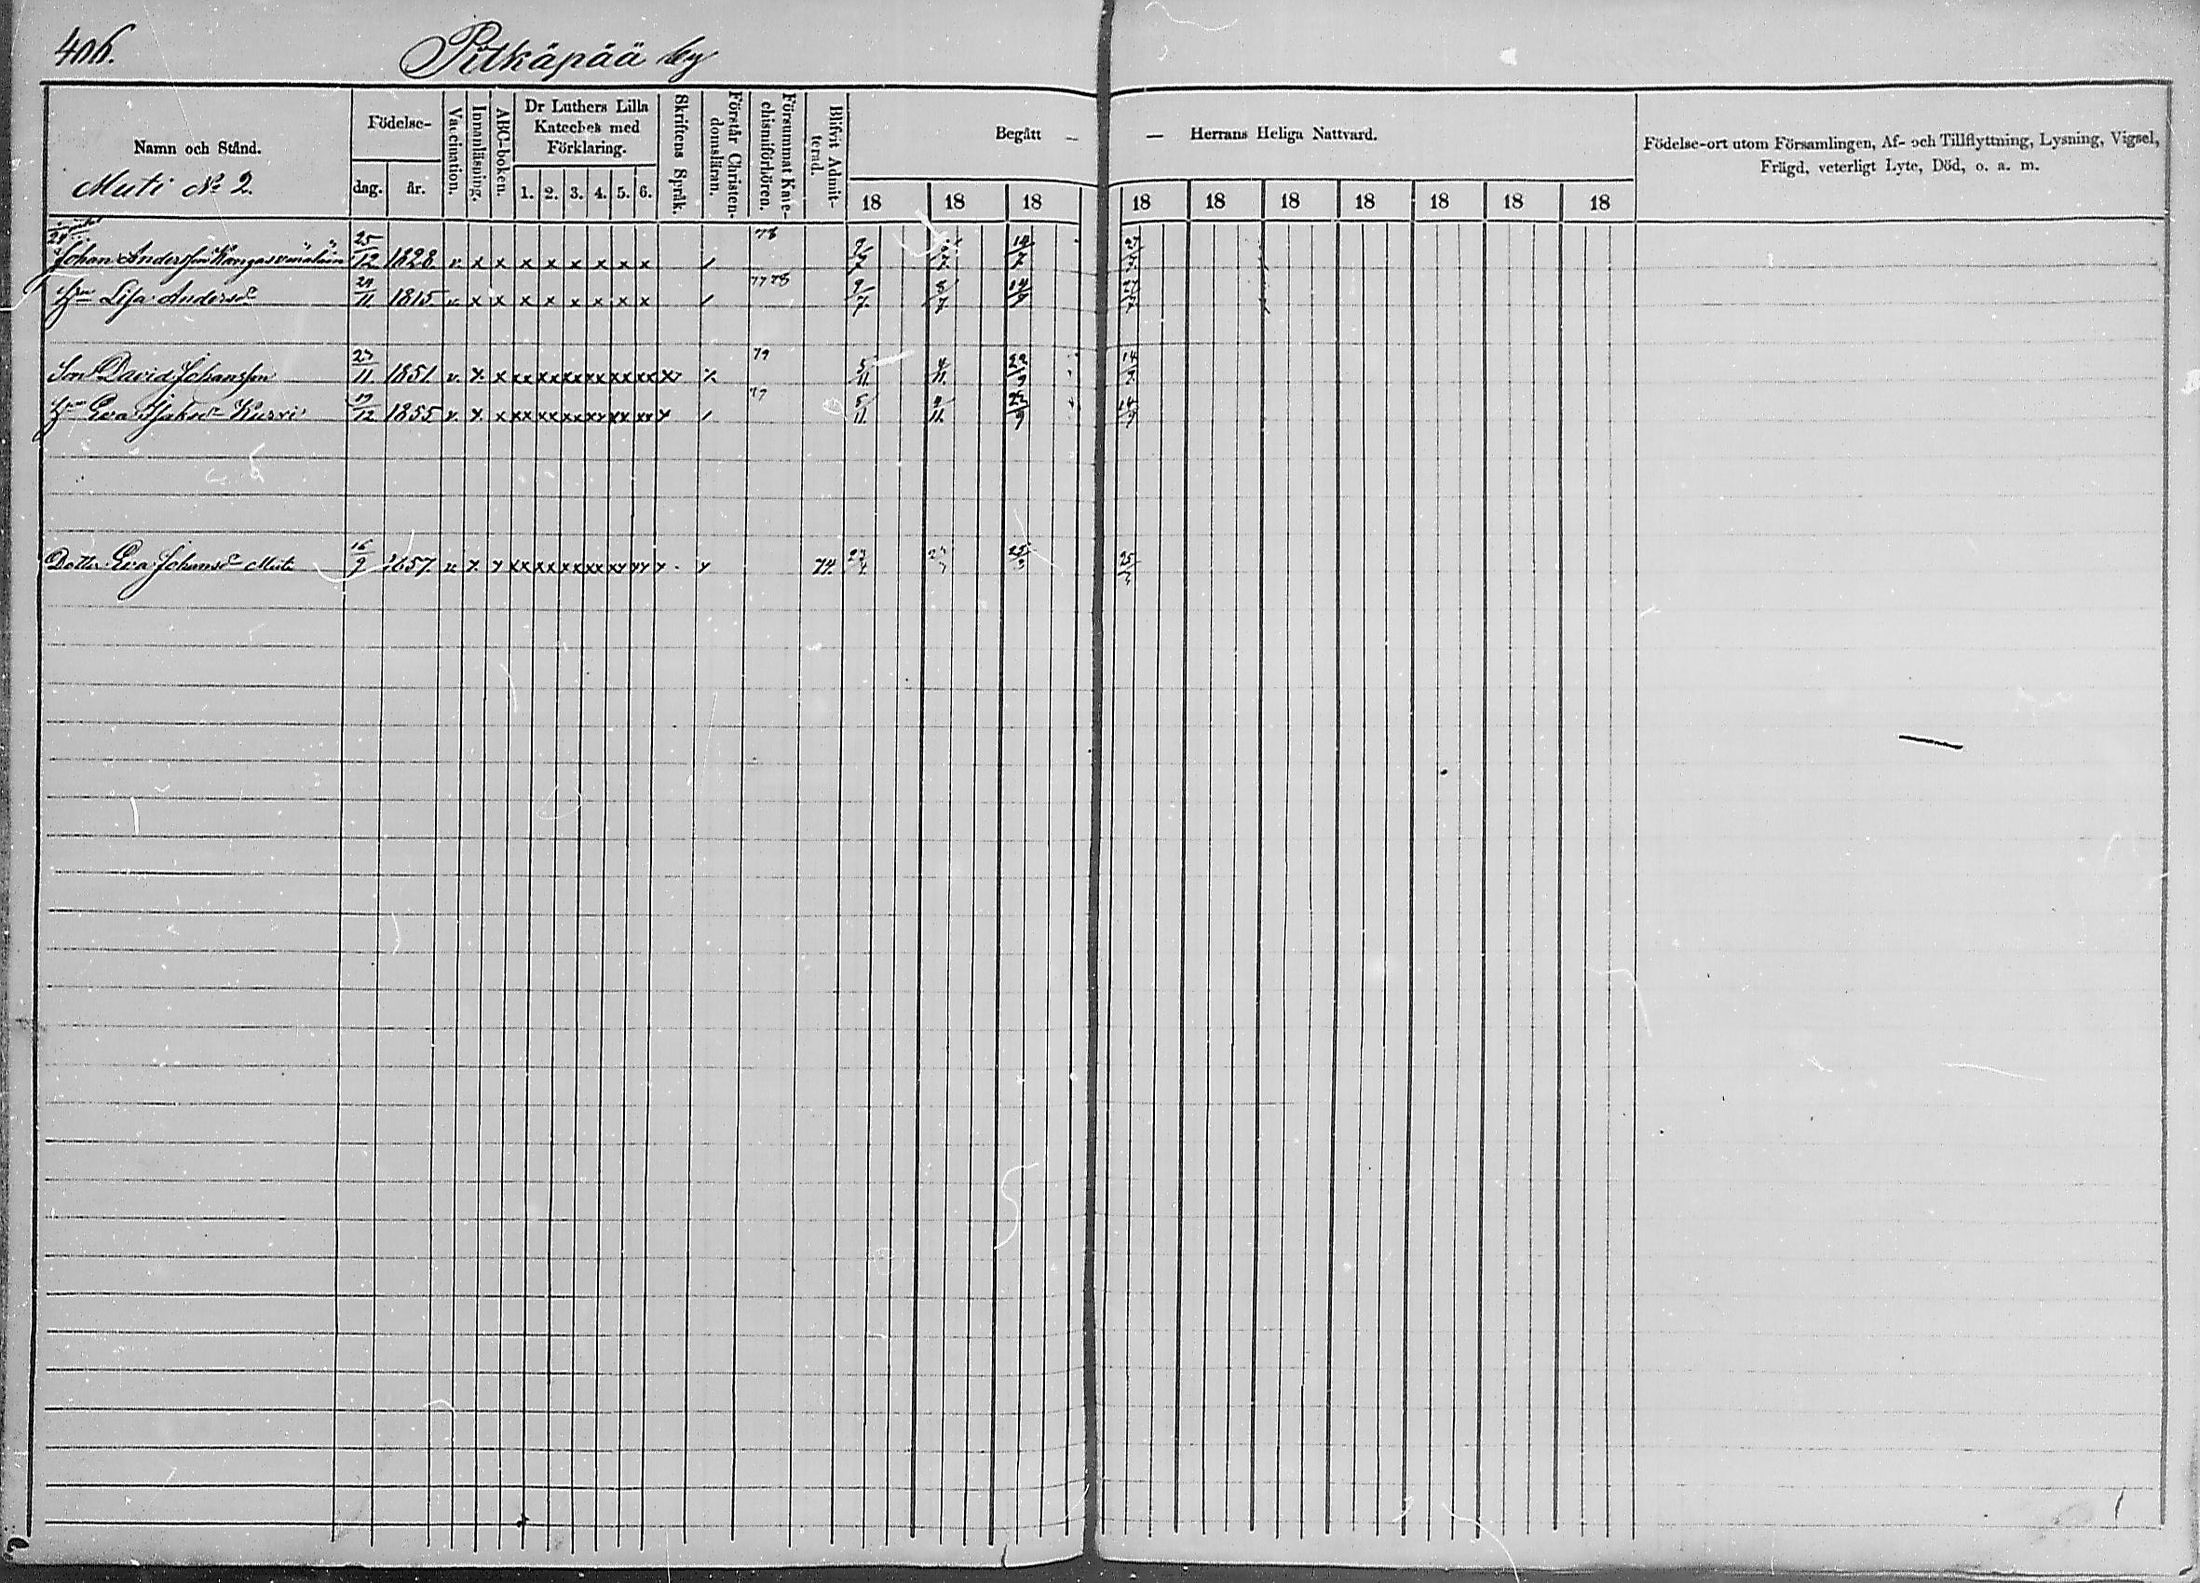 406.
Pitkäpää by
Namn och Stånd.
Muti No 2.
Födelse-
dag. år.
Vaccination.
Innanläsning.
ABC-boken.
Dr Luthers Lilla
Kateches med
Förklaring.
1. 2. 3. 4. 5. 6.
Skriftens Språk.
Förstår Christen-
domsläran.
Försummat Kate-
chismiförhören.
Blifvit Admit-
terad.
Begått —
— Herrans Heliga Nattvard.
18 18 18 18 18 18 18 18 18 18
Födelse-ort utom Församlingen, Af- och Tillflyttning, Lysning, Vigsel,
Frägd, veterligt Lyte, Död, o. a. m.
Johan Andersson 25/12 1828 v. x x x x x x x x 78 9/7 14/7
Lisa Andersd 1815 v. x x x x x x x x 77 78 9/7 8/7 14/9
Son David Johansson 23/11. 1851. v. x x xx xx xx xx xx xx x 79 5/11. 4/11. 22/9 14/9
Eva Jakobd Kurri 1855 v. x x xx xx xx xx xx xx x 77 5/11. 22/9 14/9
Dotter Eva Johansd Muti 16/9 1857. v. x x xx xx xx xx xx xx x x 74. 25/7